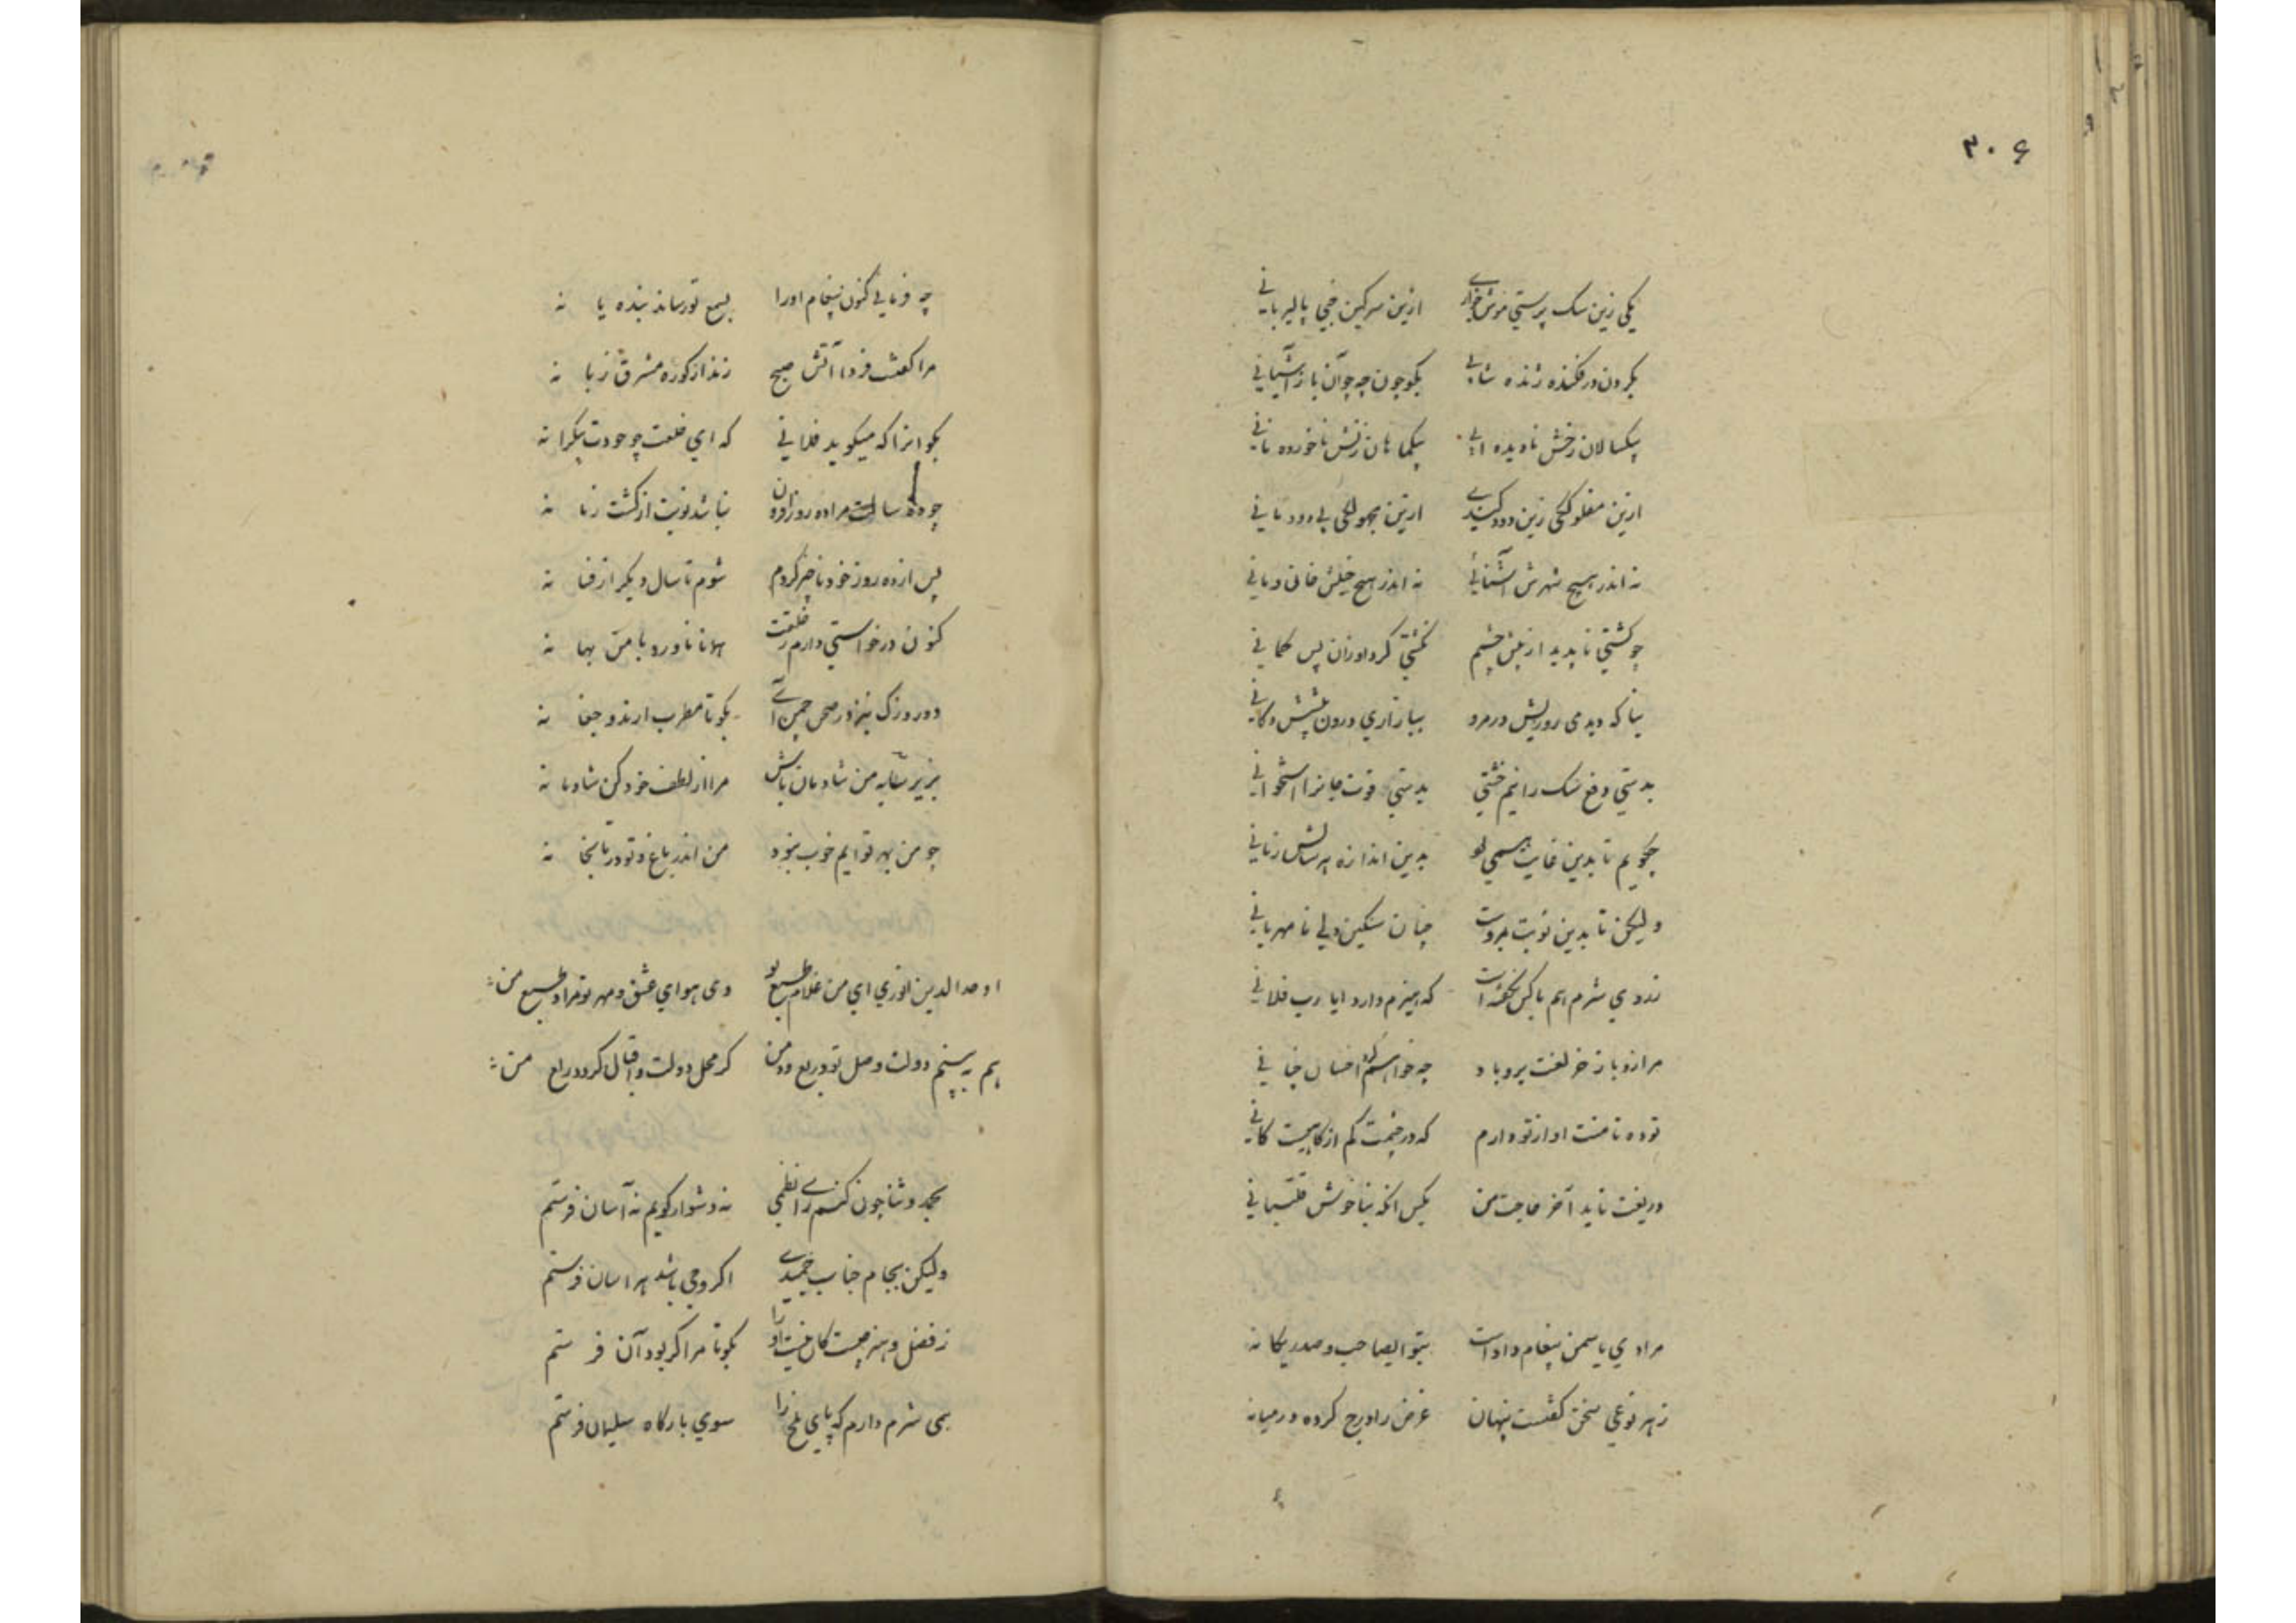 ۳۰۶
یکی زین سک پرستی موش خواری ازین سرکین پالیز بانی
بکردن در فکنده ژنده شابی بکو چون چه چو آن باز آشیانی
بیکسالان رخش نادیده آبی بیکماهان تنش ناخورده نانی
ازین مفلوککی زین دود کندی ازین مجهولکی بی دودمانی
نه اندر هیچ شهرش آشنائی نه اندر هیچ خیلش خان ومانی
چو کشتی ناپدید از پیش چشم نکشتی کرد اوزان پس کمانی
بیازاری درون
بدستی دفع سک را نیم خشتی بدستی قوت جانرا استخوانی
چکویم تا بدین غایت بدین اندازه هر سالش زیانی
ولیکن تا بدین نوبت چنان سنکین دلی نامهربانی
نه روی شرم هم با کس نکفته است که هیزم دارد ایا رب فلانی
مرا زو باز خر لعنت برو باد چه خواهی کرد احسان چنانی
تو ده تا منت او از تو دارم که در چشمت کم از کاهیست کانی
دریغت ناید آخر حاجت من بکس انکه بناخوش قلتبانی
مرا دی یاسمن پیغام دادست بتو ایصاحب و صدر یکانه
ز هر نوعی سخن کفتست پنهان غرض را درج کرده در میانه
چه فرمائی کنون پیغام اورا بسمع تو رساند بنده یا نه
مرا کفت فردا آتش صبح زند از کوره مشرق زبانه
بکو انرا که میکوید فلانی که ای خلعت چو جودت بیکرانه
چو ده سالست مرا ده روز نباشد نوبت از کشت زمانه
پس از ده روز خود ناچیز کردم شوم تا سال دیکر از فسانه
کنون درخواستی دارم ز خلقت همانا ناورد با من بهانه
دو روزک نیز در صحن چمن آی بکو تا مطرب ارند و چغانه
بزیر سایه من شادمان باش مرا از لطف خود کن شادمانه
چو من بهر تو ایم خوب نبود من اندر باغ و تو در تابخانه
اوحد الدین انوری ای من غلام طبع تو وی هوای عشق و مهر تو مراد طبع من
هم ببینم دولت وصل تو در ربع و دمن کر محل دولت و اقبال کردد ربع من
بحمد و ثنا چون کنم رای نظمی نه دشوار کویم نه آسان فرستم
ولیکن بجام جناب حمیدی اکر وحی باشد هراسان فرستم
ز فضل و هنر چیست کان نیست اورا بکو تا مرا کر بود آن فرستم
همی شرم دارم که پای ملخ را سوی بارکاه سلیمان فرستم